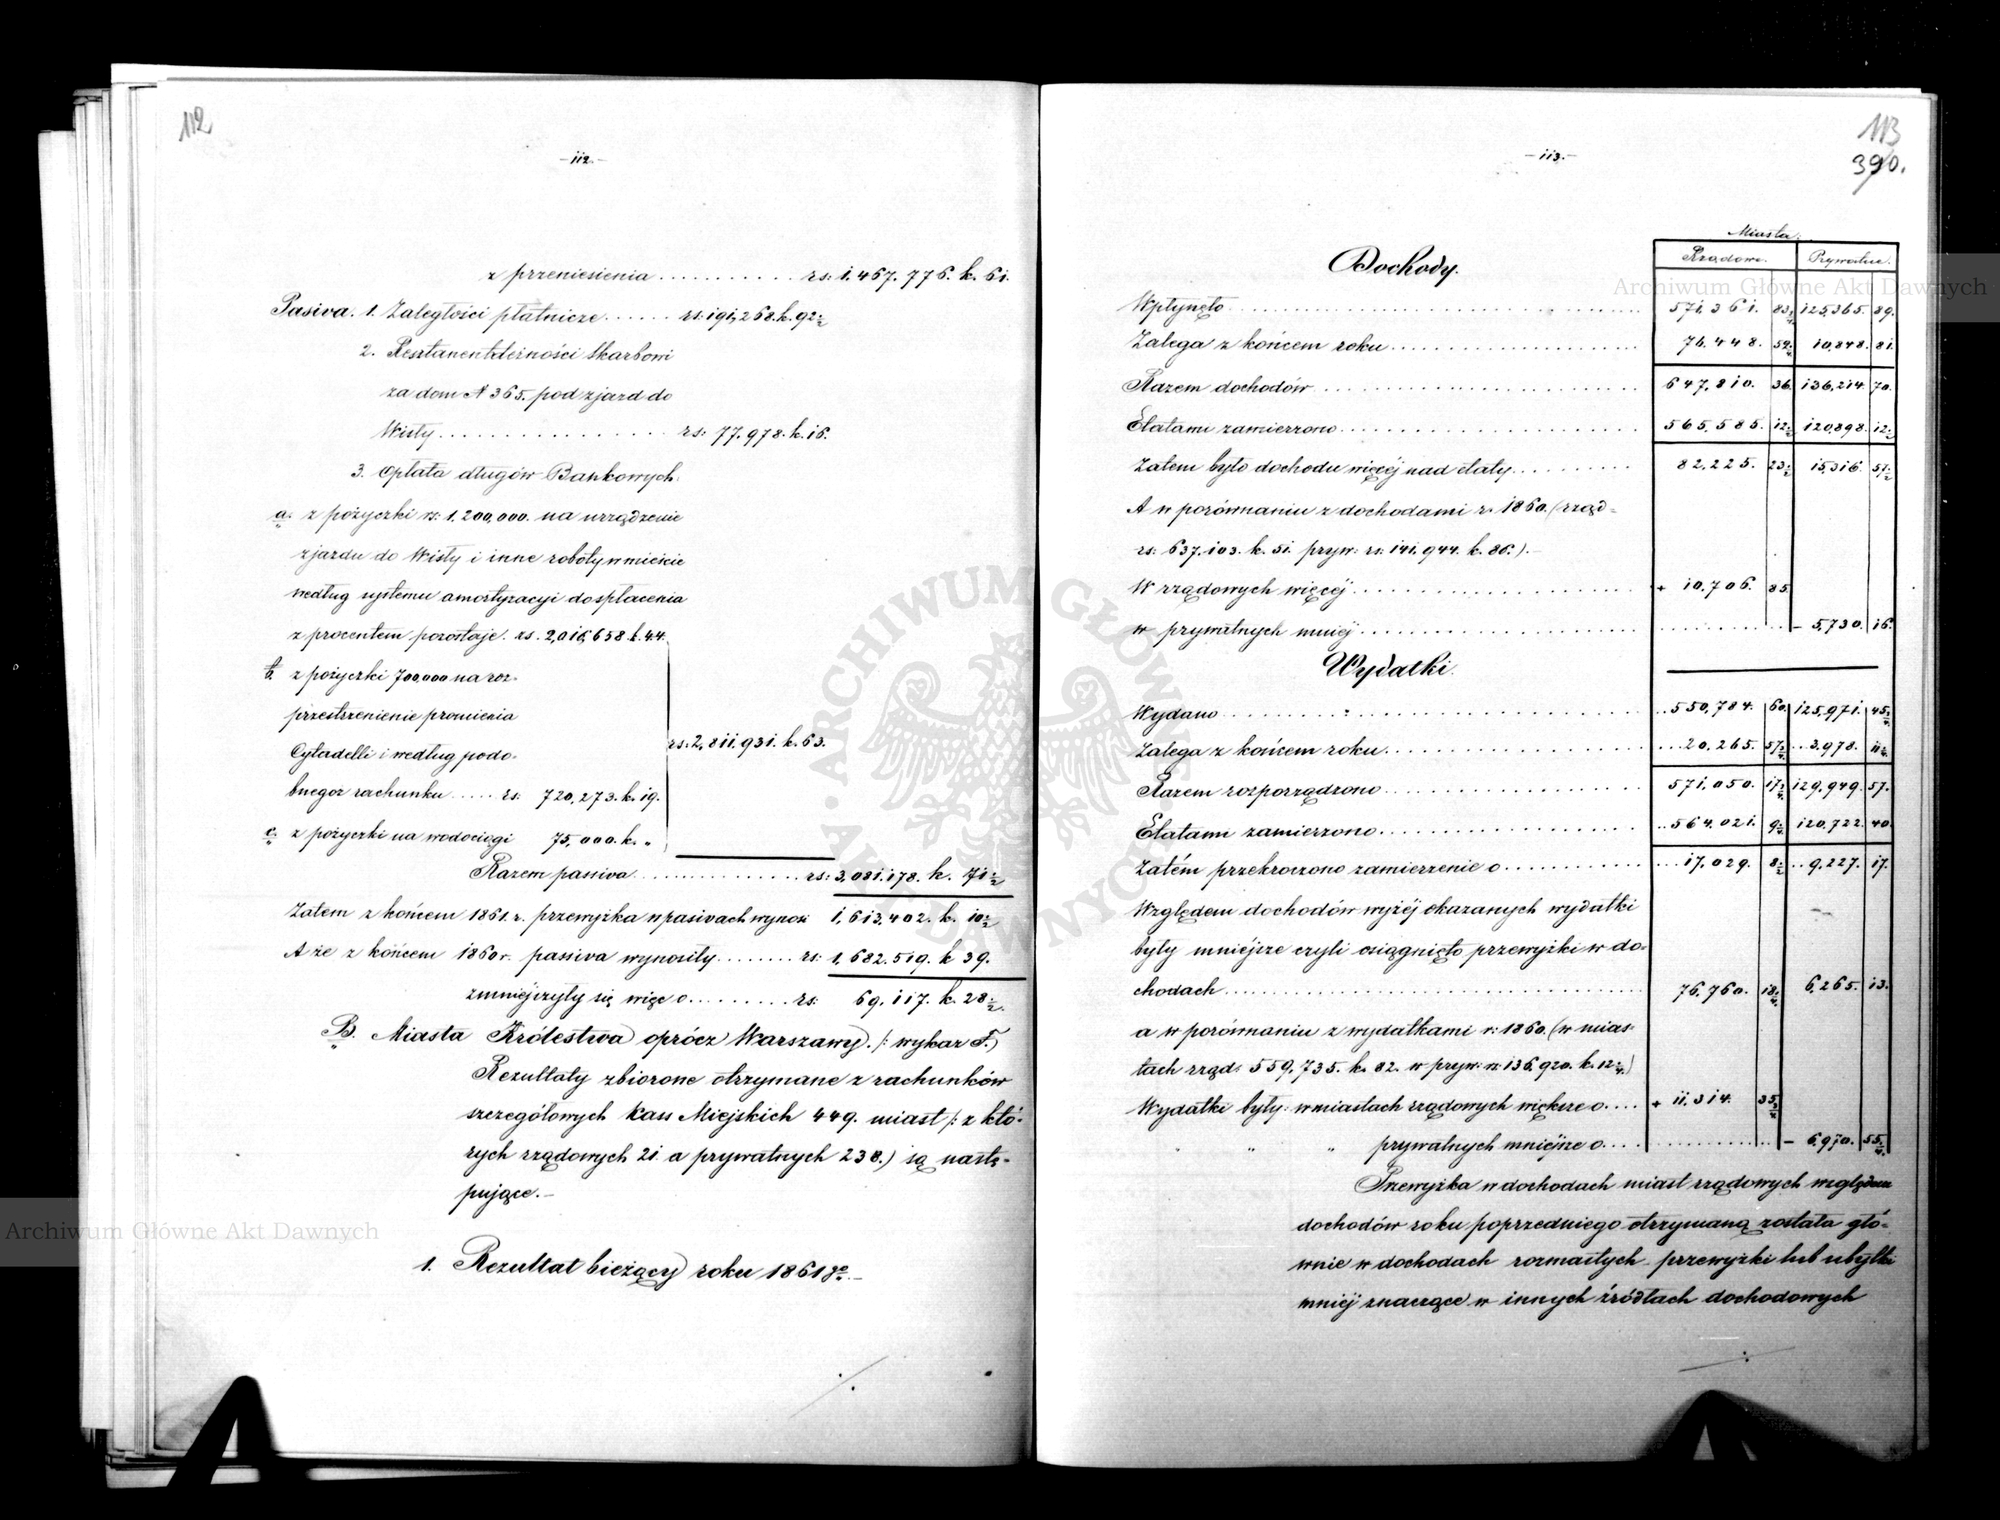 112
-112.-
z przeniesienia ............ rs: 1.467.776. k. 61.
Pasiva. 1. Zaległości płatnicze ...... rs: 191,268. k. 92½
2. Resztanent należności skarbowi
za dom N 365. pod zjazd do
Wisły .................. rs: 77.978. k. 16.
3. Opłata długów Bankowych.
a. z pożyczki rs: 1.200,000. na urządzenie
zjazdu do Wisły i inne roboty w mieście
według systemu amortyzacyi do spłacenia
z procentem pozostaje. rs. 2,016,658 k. 44.
b. z pożyczki 700,000 na roz-
przestrzenienie promienia
Cytadelli i według podo-
bnegoż rachunku ..... rs: 720,273. k. 19.
rs: 2,811.931. k. 63.
c. z pożyczki na wodociągi 75,000. k. "
Razem passiva .................. rs: 3,081.178. k. 71½
Zatem z końcem 1861. r. przewyżka w pasivach wynosi 1,613,402. k. 10½
A że z końcem 1860 r. passiva wynosiły ........ rs: 1,682.519. k 39.
zmniejszyły się więc o .......... rs: 69.117. k. 28½
B. Miasta Królestwa oprócz Warszawy. /: wykaz F.)
Rezultaty zbiorone otrzymane z rachunków
szczegółowych Kass Miejskich 449. miast /: z któ-
rych rządowych 21 a prywatnych 238.) są nastę-
pujące.-
1. Rezultat bieżący roku 1861 go.-
113
390.
-113.-
Miasta:
Rządowe. Prywatne.
Dochody.
Wpłynęło ............ 571,361. 83¾ 125,365. 89.
Zalega z końcem roku ............ 76.448. 52¼ 10,848. 81.
Razem dochodów ............ 647,810. 36. 136,214. 70.
Etatami zamierzono ............ 565,585. 12½ 120,898. 12½
Zatem było dochodu więcéj nad etaty ............ 82,225. 23½ 15,316. 57½
A w porównaniu z dochodami r. 1860. (rząd-
rs: 637.103. k. 51. pryw: rs: 141,944. k. 86.).-
W rządowych więcéj ............ + 10,706. 85.
w prywatnych mniéj ............ - 5,730. 16.
Wydatki.
Wydano ............ 550,784. 60. 125,971. 45¾
Zalega z końcem roku ............ 20,265. 57¾ 3,978. 11¼
Razem rozporządzono ............ 571,050. 17¾ 129,949. 57.
Etatami zamierzono ............ 564,021. 9¼ 120,722. 40.
Zatém przekroczono zamierzenie o ............ 17,029. 8½ 9,227. 17.
Względem dochodów wyżéj okazanych wydatki
były mniéjsze czyli osiągnięto przewyżki w do-
chodach ............ 76,760. 18¼ 6,265. 13.
a w porównaniu z wydatkami r: 1860. (w mias-
tach rząd: 559,735. k. 82. w pryw: rs: 136,920. k. 12¼)
Wydatki były: w miastach rządowych większe o .... + 11.314. 35¾
" " " prywatnych mniéjsze o .... - 6,970. 55¼
Przewyżka w dochodach miast rządowych względem
dochodów roku poprzedniego otrzymaną została głó-
wnie w dochodach rozmaitych - przewyżki lub ubytki
mniéj znaczące w innych źródłach dochodowych
ARCHIWUM GŁÓWNE AKT DAWNYCH
Archiwum Główne Akt Dawnych
Archiwum Główne Akt Dawnych